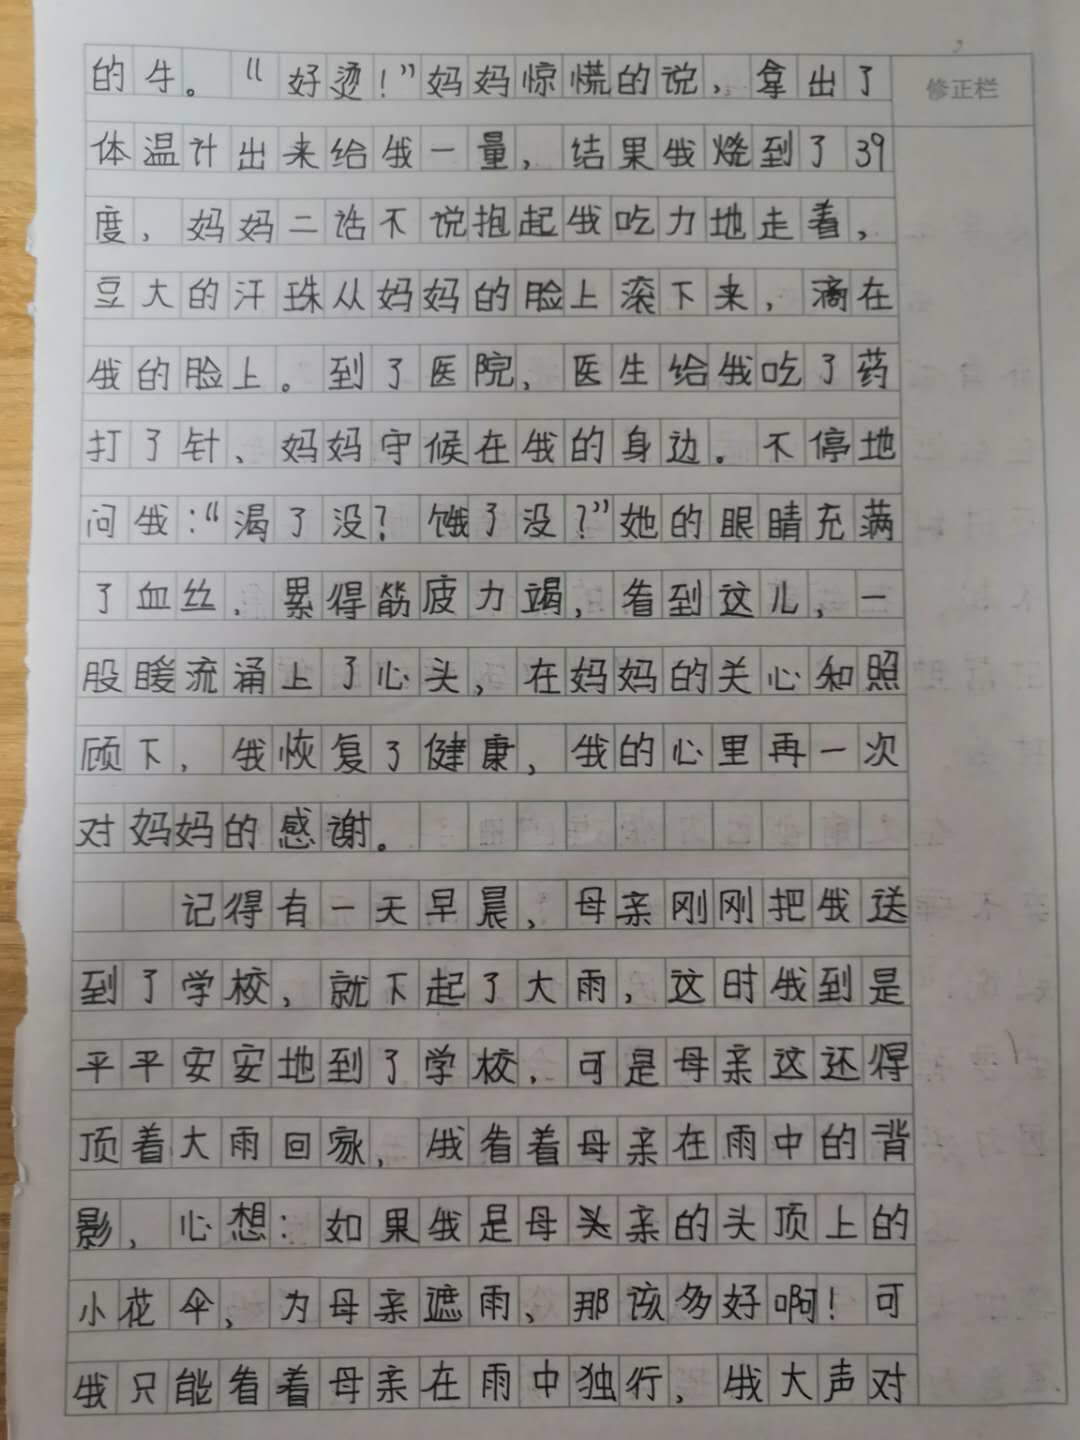 的牛。“好烫！”妈妈惊慌的说，拿出了
修正栏
体温计出来给我一量，结果我烧到了39
度，妈妈二话不说抱起我吃力地走着，
豆大的汗珠从妈妈的脸上滚下来，滴在
我的脸上。到了医院，医生给我吃了药
打了针、妈妈守候在我的身边。不停地
问我：“渴了没？饿了没？”她的眼睛充满
了血丝，累得筋疲力竭，看到这儿，一
股暖流涌上了心头，在妈妈的关心和照
顾下，我恢复了健康，我的心里再一次
对妈妈的感谢。
记得有一天早晨，母亲刚刚把我送
到了学校，就下起了大雨，这时我到是
平平安安地到了学校，可是母亲这还得
顶着大雨回家，我看着母亲在雨中的背
影，心想：如果我是母头亲的头顶上的
小花伞，为母亲遮雨、那该多好啊！可
我只能看着母亲在雨中独行，我大声对